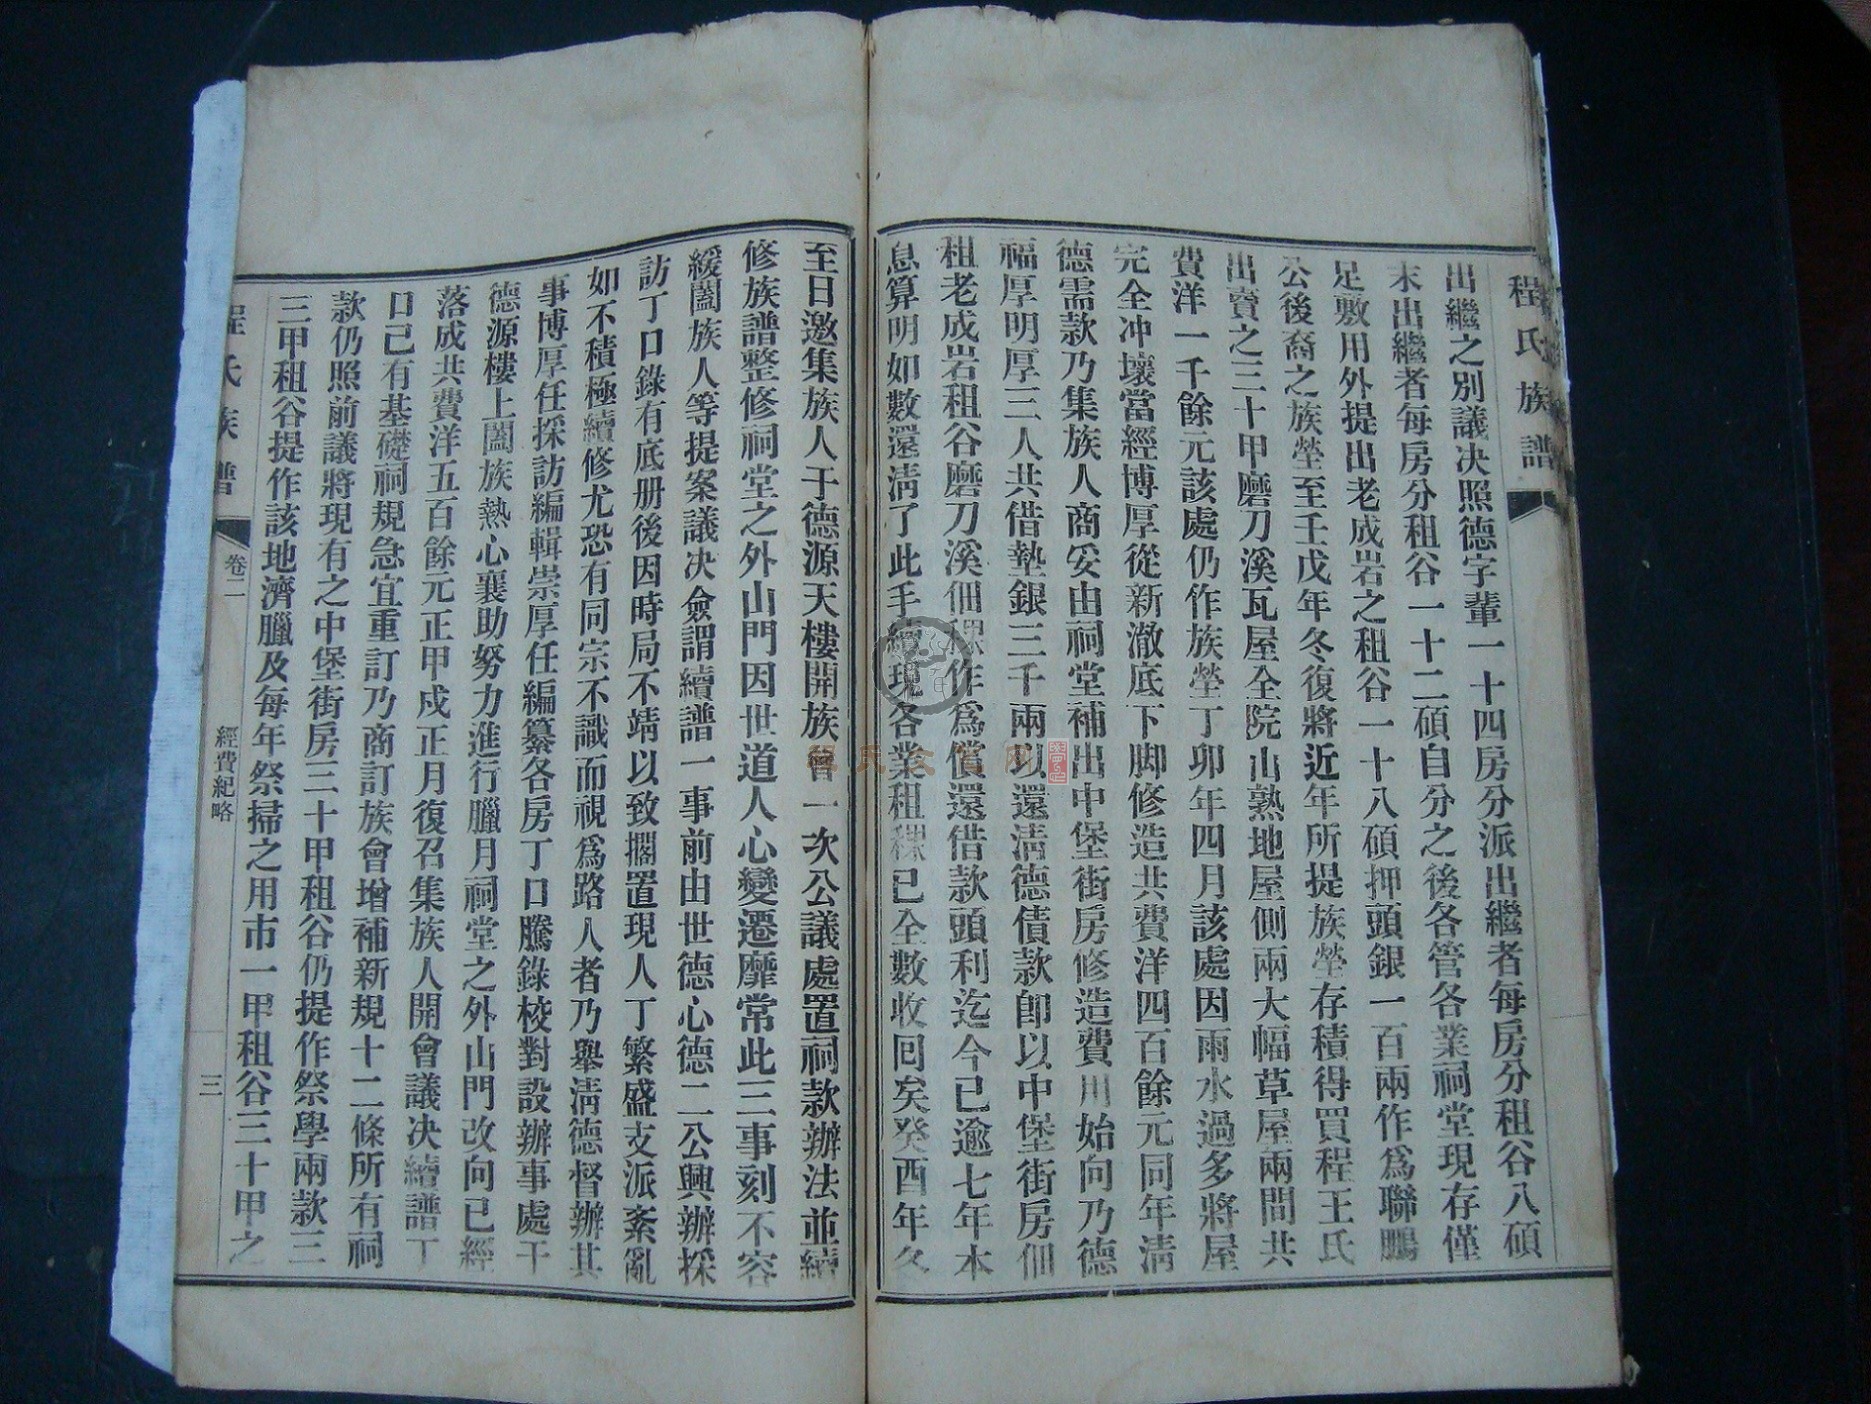 程氏族譜
出繼之別議决照德字輩一十四房分派出繼者每房分租谷八碩
末出繼者每房分租谷一十二碩自分之後各管各業祠堂現存僅
足敷用外提出老成岩之租谷一十八碩押頭銀一百兩作爲聯鵬
公後裔之族塋至壬戊年冬復將近年所提族塋存積得買程王氏
出賣之三十甲磨刀溪瓦屋全院山熟地屋側兩大幅草屋兩間共
費洋一千餘元該處仍作族塋丁卯年四月該處因雨水過多將屋
完全冲壞當經博厚從新澈底下脚修造共費洋四百餘元同年淸
德需款乃集族人商妥由祠堂補出中堡街房修造費用始向乃德
福厚明厚三人共借墊銀三千兩以還淸德債款卽以中堡街房佃
租老成岩租谷磨刀溪佃稞作爲償還借款頭利迄今已逾七年本
息算明如數還淸了此手續現各業租稞已全數收回矣癸酉年冬
至日邀集族人于德源天樓開族會一次公議處置祠款辦法並續
修族譜整修祠堂之外山門因世道人心變遷靡常此三事刻不容
緩闔族人等提案議决僉謂續譜一事前由世德心德二公興辦採
訪丁口錄有底册後因時局不靖以致擱置現人丁繁盛支派紊亂
如不積極續修尤恐有同宗不識而視爲路人者乃舉淸德督辦其
事博厚任採訪編輯崇厚任編纂各房丁口騰錄校對設辦事處于
德源樓上闔族熱心襄助努力進行臘月祠堂之外山門改向已經
落成共費洋五百餘元正甲戍正月復召集族人開會議决續譜丁
口己有基礎祠規急宜重訂乃商訂族會增補新規十二條所有祠
款仍照前議將現有之中堡街房三十甲租谷仍提作祭學兩款三
三甲租谷提作該地濟臘及每年祭掃之用市一甲租谷三十甲之
程氏族譜
卷二
經費紀略
三